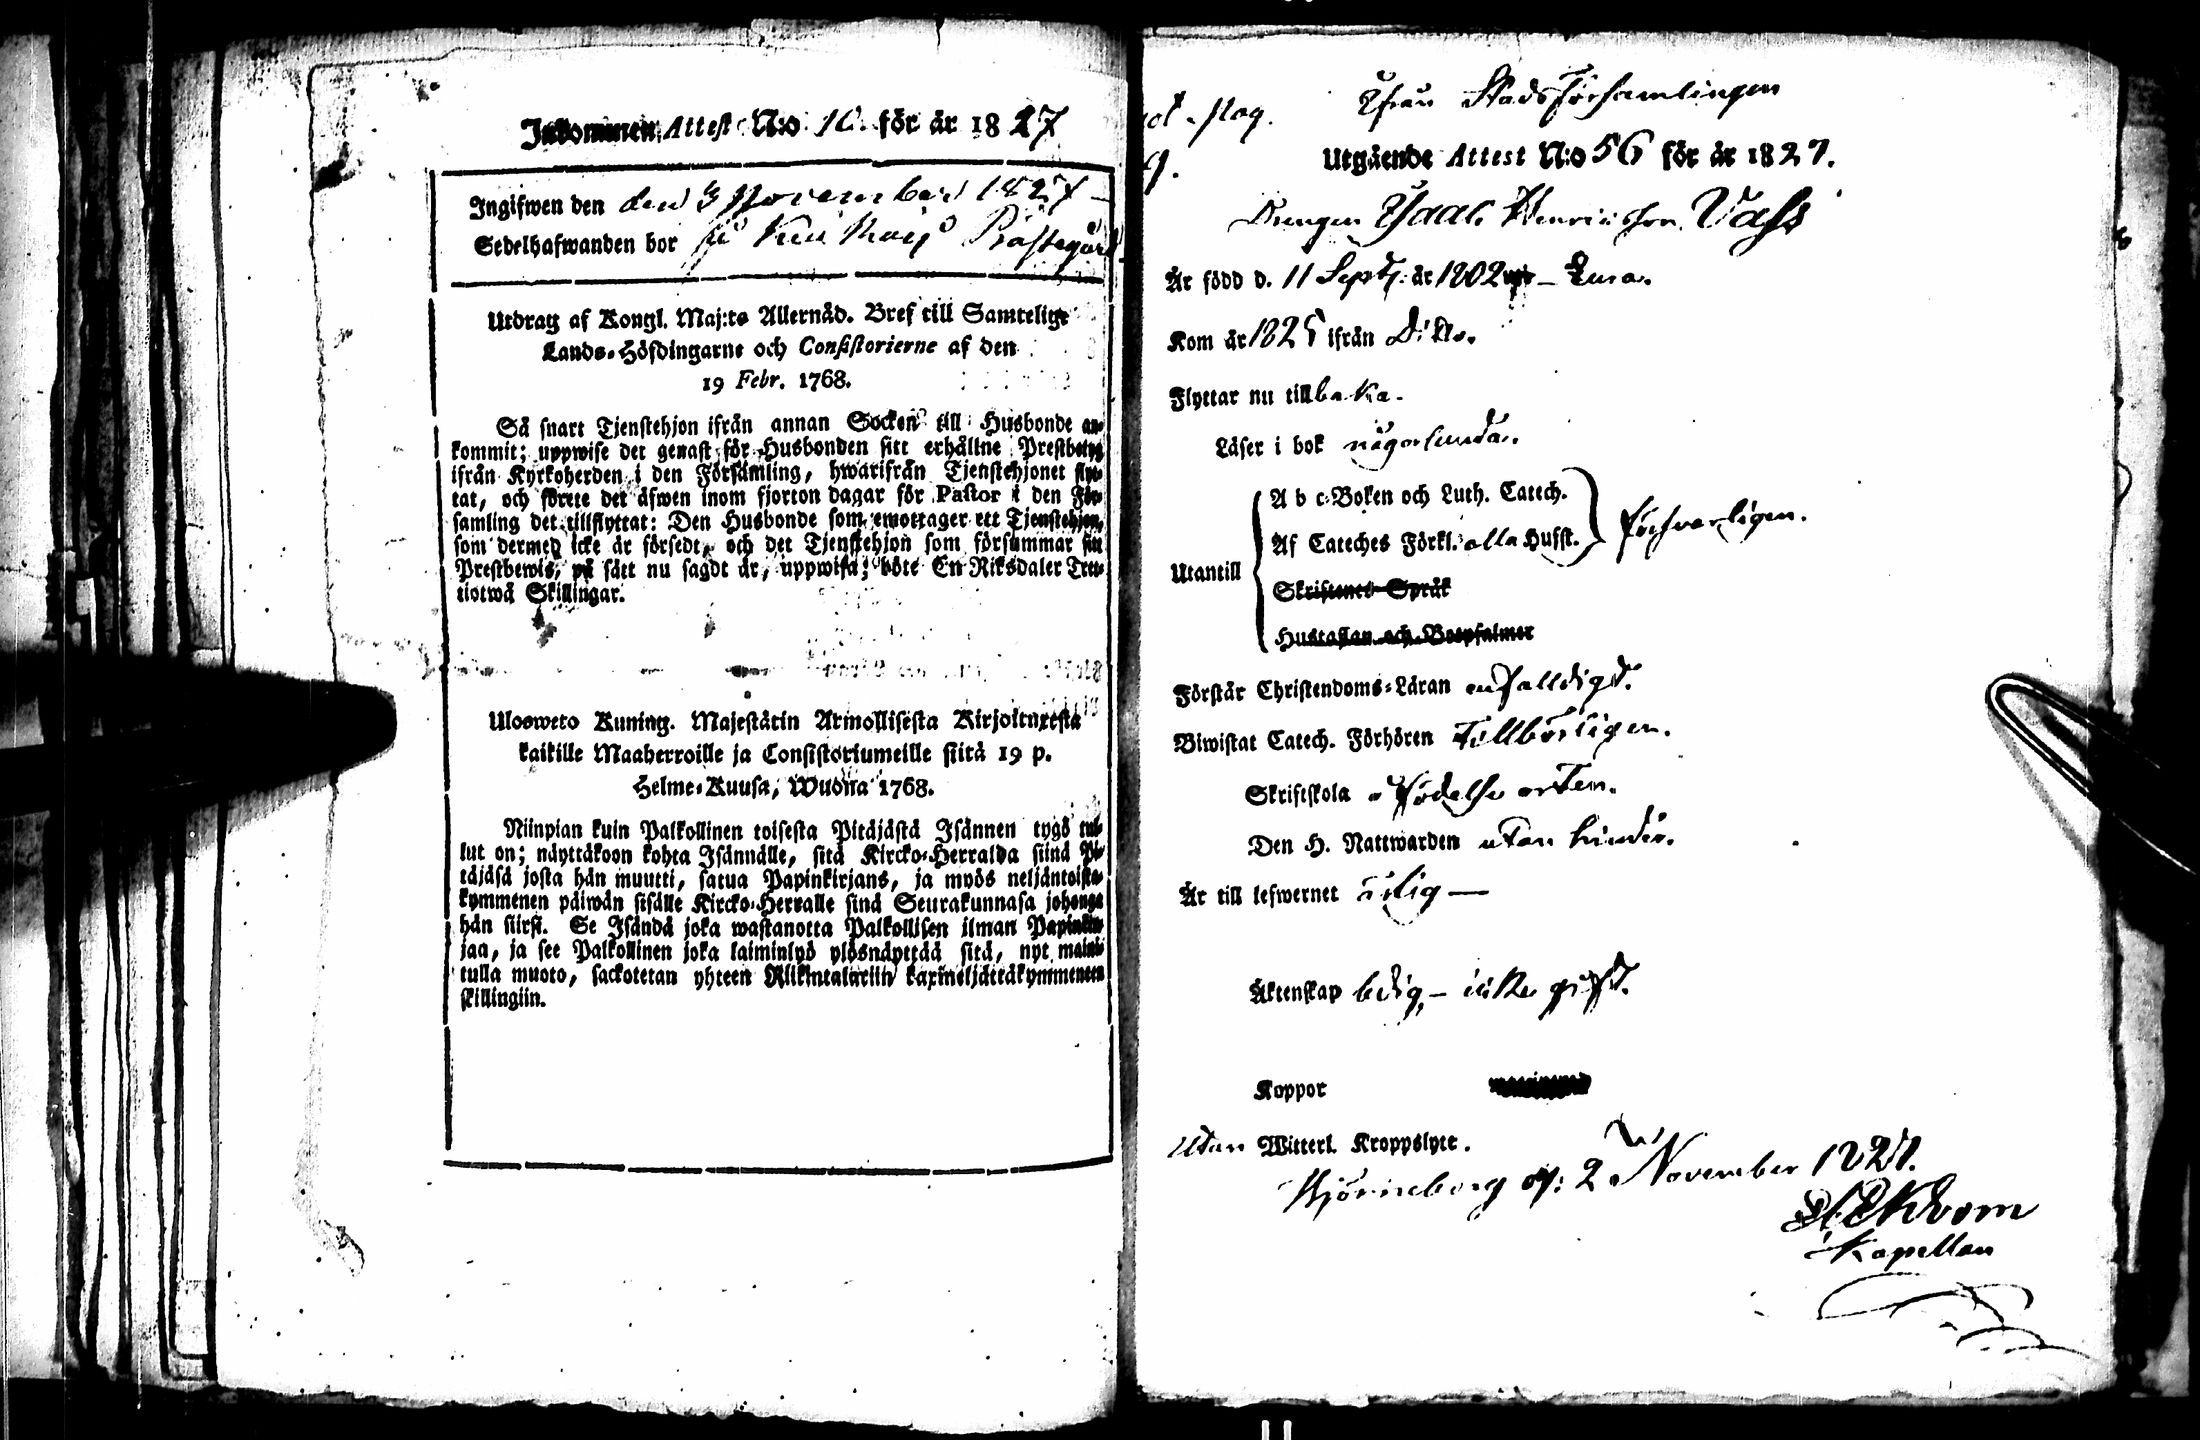 Inkommen Attest N:o 10. för år 1827
Ingifwen den den 3 November 1827
Sedelhafwanden bor Prästegård
Utdrag af Kongl. Maj:ts Allernåd. Bref till Samtelige
Lands-Höfdingarne och Consistorierne af den
19 Febr. 1768.
Så snart Tjenstehjon ifrån annan Socken till Husbonde an-
kommit; uppwise det genast för Husbonden sitt erhållne Prestbetyg
ifrån Kyrkoherden i den Församling, hwarifrån Tjenstehjonet flyt-
tat, och förete det äfwen inom fjorton dagar för Pastor i den För-
samling det tillflyttat: Den Husbonde som emottager ett Tjenstehjon,
som dermed icke är försedt, och det Tjenstehjon som försummar sitt
Prestbewis, på sätt nu sagdt är, uppwisa; böte En Riksdaler Tret-
tiotwå Skillingar.
Ulosweto Kuning. Majestätin Armollisesta Kirjoituxesta
kaikille Maaherroille ja Consistoriumeille siitä 19 p.
Helme-Kuusa, Wuona 1768.
Niinpian kuin Palkollinen toisesta Pitäjästä Isännen tygö tul-
lut on; näyttäkoon kohta Isännälle, sitä Kircko-Herralda siinä Pi-
täjäsä josta hän muutti, saatua Papinkirjans, ja myös neljäntoista-
kymmenen päiwän sisälle Kircko-Herralle sinä Seurakunnasa johonga
hän siirsi. Se Isändä joka wastanotta Palkollisen ilman Papinkir-
jaa, ja see Palkollinen joka laiminlyö ylösnäyttää sitä, nyt maini-
tulla muoto, sackotetan yhteen Riikintalariin kaxineljättäkymmenten
skillingiin.
Ifrån Stads Församlingen
Utgående Attest N:o 56 för år 1827.
Drengen Isaac Henricsson Vass
Är född d. 11 Sept: år 1802 Eura.
Kom år 1825 ifrån Ditto.
Flyttar nu tillbaka.
Läser i bok någorlunda.
Utantill
A b c-Boken och Luth. Catech.
Af Cateches Förkl. alla Hufst.
försvarligen.
Skriftenes Språk
Hustaflan och Botpsalmer
Förstår Christendoms-Läran enfalldigt.
Biwistat Catech. Förhören Tillbörligen.
Skriftskola i födelse orten.
Den H. Nattwarden utan hinder.
Är till lefwernet ärlig —
Äktenskap ledig, — icke gift.
Koppor
Utan Witterl. Kroppslyte.
Björneborg d: 2 November 1827.
Ekbom
Kapellan